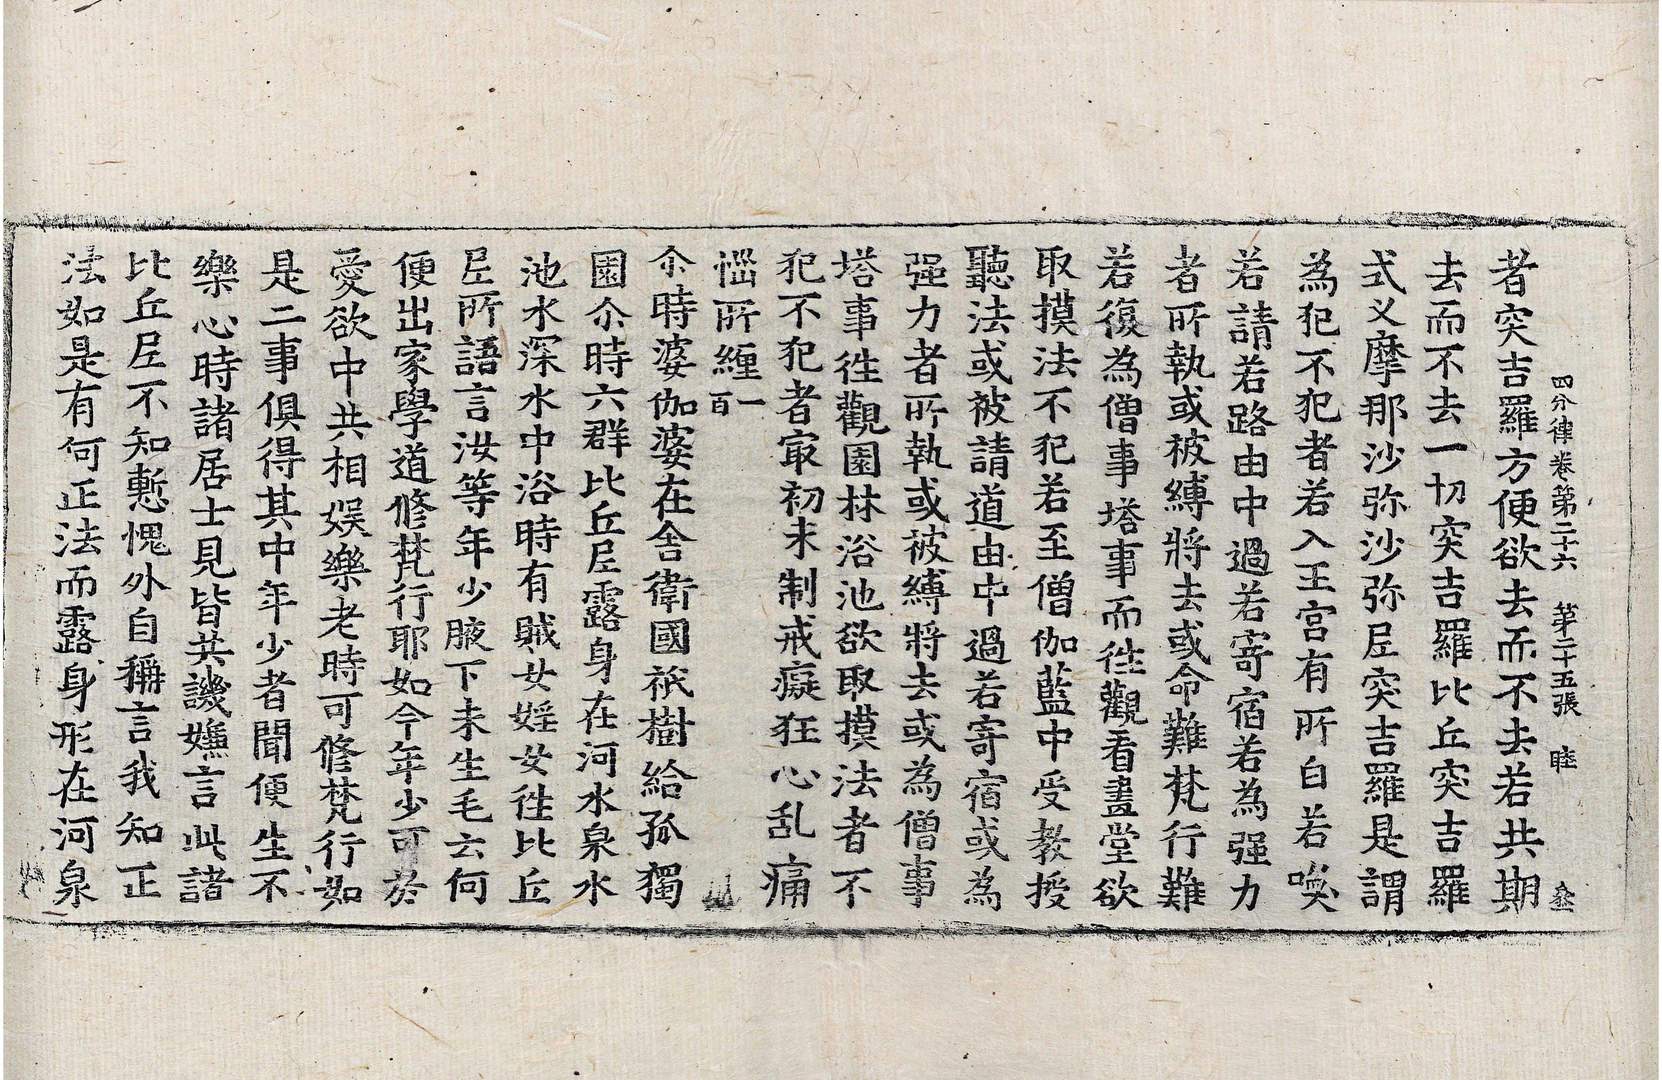 四分律卷第二十六　第二十五張　睦
者突吉羅方便欲去而不去若共期
去而不去一切突吉羅比丘突吉羅
式叉摩那沙弥沙弥尼突吉羅是謂
為犯不犯者若入王宮有所白若喚
若請若路由中過若寄宿若為强力
者所執或被縛將去或命難梵行難
若復為僧事塔事而徃觀看畫堂欲
取摸法不犯若至僧伽藍中受教授
聽法或被請道由中過若寄宿或為
强力者所執或被縛將去或為僧事
塔事徃觀園林浴池欲取摸法者不
犯不犯者冣初未制戒癡狂心乱痛
惱所纏一百
尒時婆伽婆在舍衛國祇樹給孤獨
園尒時六群比丘尼露身在河水泉水
池水深水中浴時有賊女女婬女徃比丘
尼所語言汝等年少腋下未生毛云何
便出家學道修梵行耶如今年少可於
愛欲中共相娛樂老時可修梵行如
是二事俱得其中年少者聞便生不
樂心時諸居士見皆共譏嫌言此諸
比丘尼不知慙愧外自稱言我知正
法如是有何正法而露身形在河泉